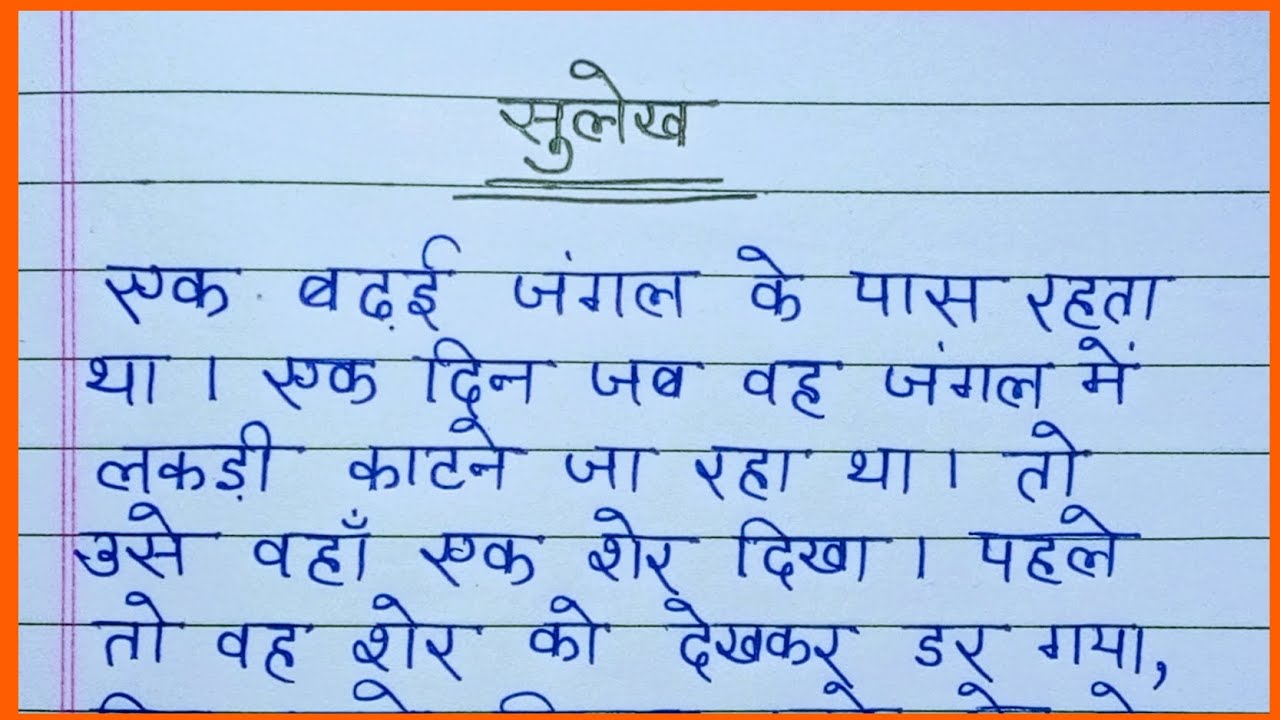 सुलेख
एक बढ़ई जंगल के पास रहता
था । एक दिन जब वह जंगल में
लकड़ी काटने जा रहा था । तो
उसे वहाँ एक शेर दिखा । पहले
तो वह शेर को देखकर डर गया,